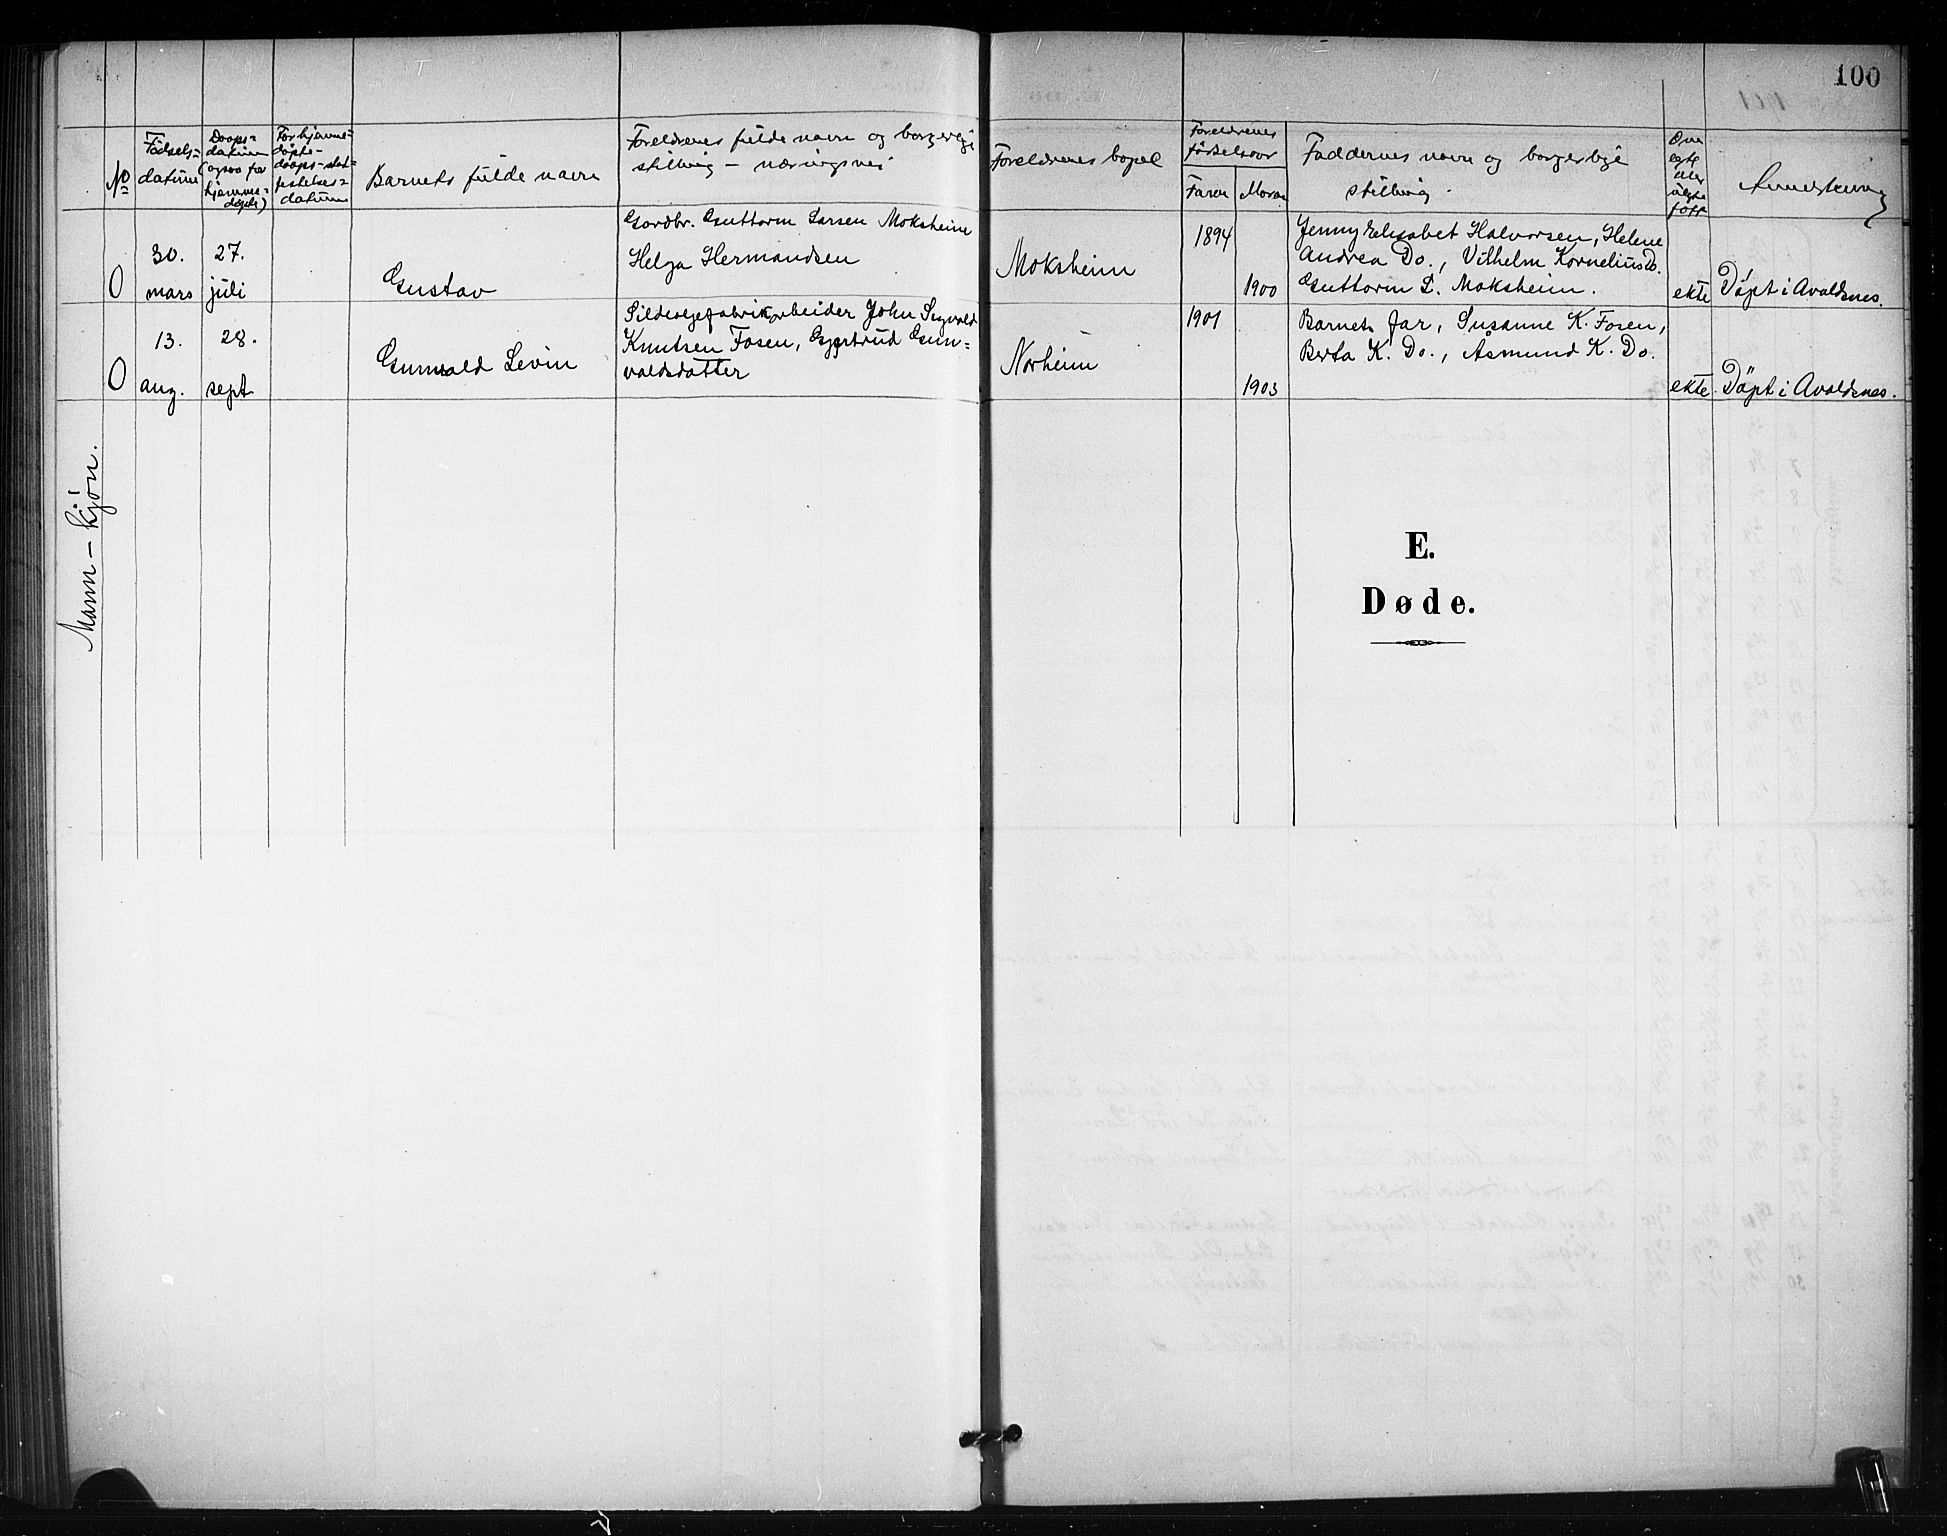 100
No
Fødsels-
datum
Daaps-
datum
(ogsaa for
hjemme-
døpte)
For hjemme-
døpte -
daaps-stad-
festelses-
datum
Barnets fulde navn
Foreldrenes fulde navn og borgerlige
stilling - næringsvei
Foreldrenes bopæl
Foreldrenes
fødselsaar
Faren
Moren
Faddernes navn og borgerlige
stilling.
Om
egte
eller
uegte
født
Anmerkning
0
30.
mars
27.
juli
Gustav
Gardbr. Guttorm Larsen Moksheim
Helga Hermandsen
Moksheim
1894
1900
Jenny Elisabet Halvorsen, Helene
Andrea Do., Vilhelm Kornelius Do.
Guttorm L. Moksheim.
ekte
Døpt i Avaldsnes.
0
13.
aug.
28.
sept
Gunvald Levin
Sildeoljefabrikarbeider John Sigvald
Knutsen Fosen, Gjertrud Gun-
valdsdatter
Norheim
1901
1903
Barnets far, Susanne K. Fosen,
Berta K. Do., Åsmund K. Do.
ekte.
Døpt i Avaldsnes.
Mann-kjøn.
E.
Døde.